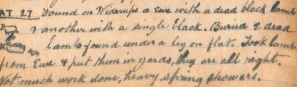 SAT 27 Found on Widerips a Ewe with a dead black lamb
& another with a single black. Buried 2 dead
lambs found under a log on flats. Took lamb
from Ewe & put them in yards, they are all right.
Not much work done, heavy spring showers.